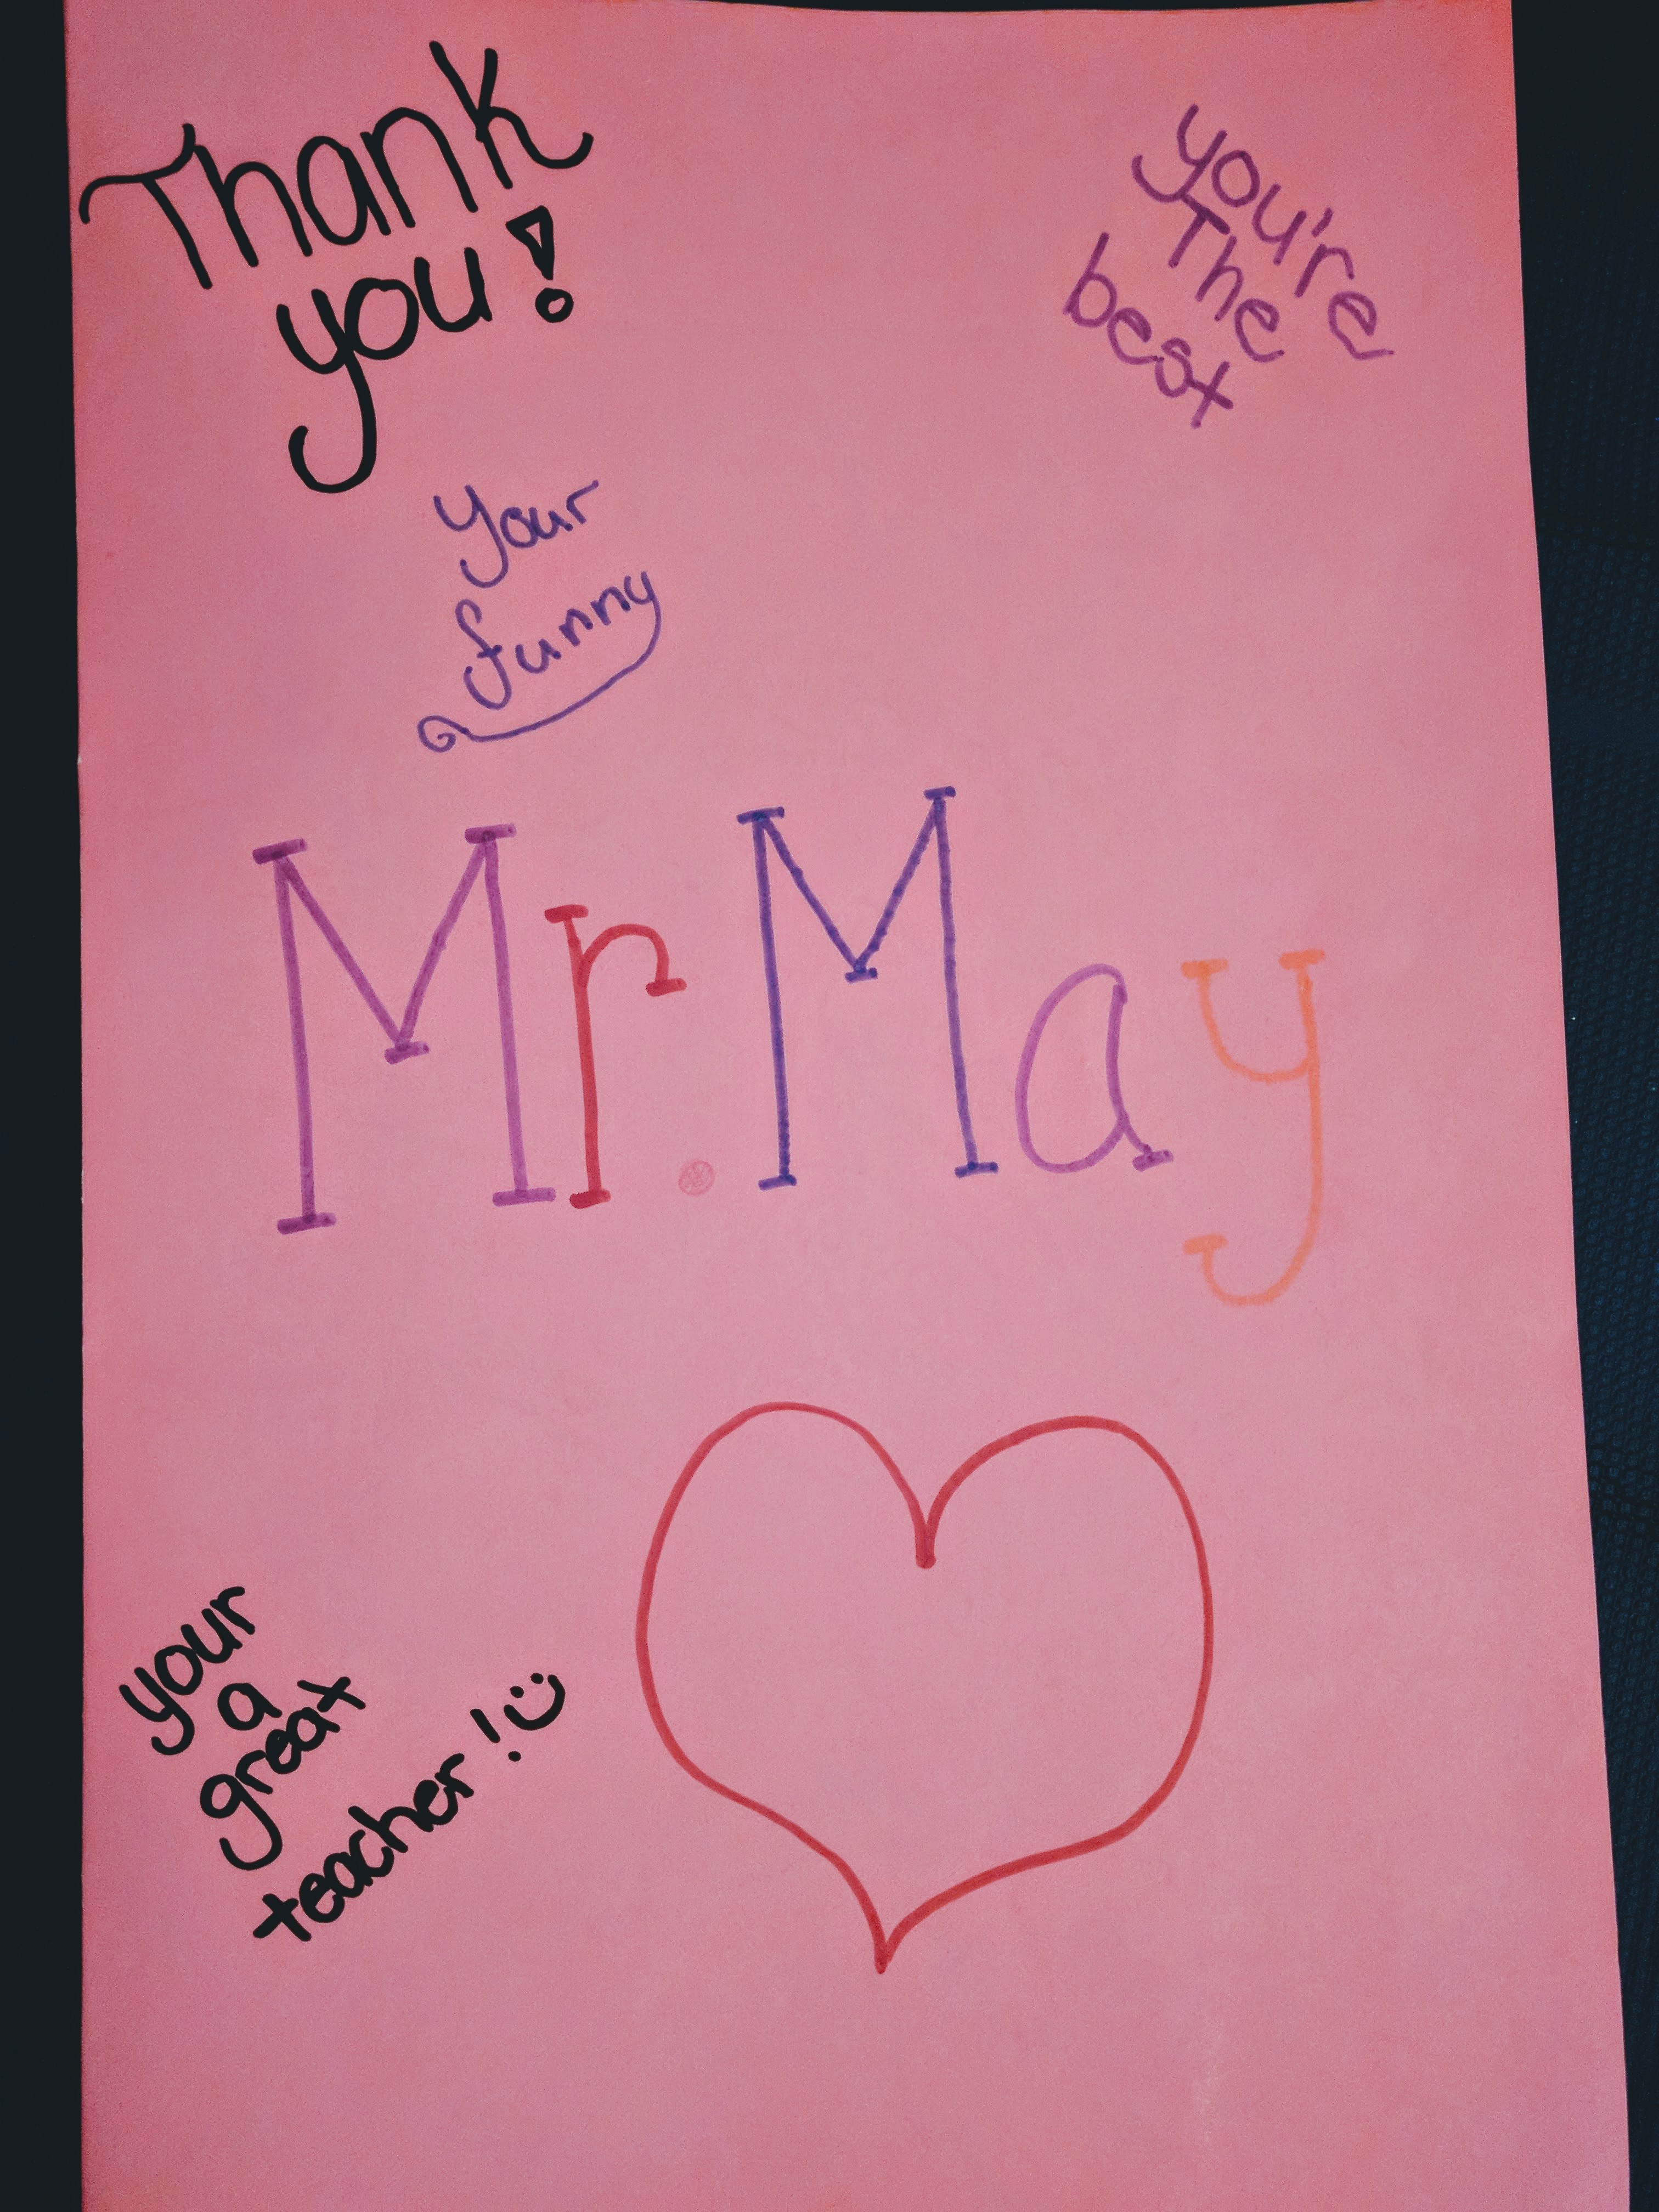 Thank
you!
you're
The
best
Your
funny
Mr. May
your
a
great
teacher!